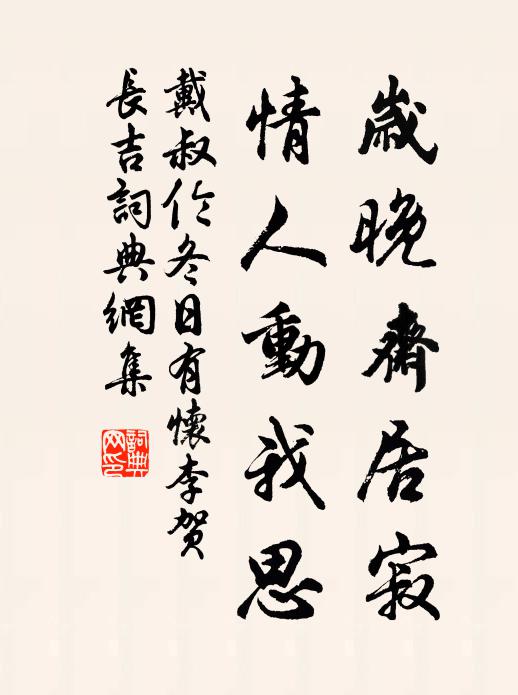 歲晚齋居寂
情人動我思
戴叔伦冬日有懷李贺
長吉詞典網集
詞典網印